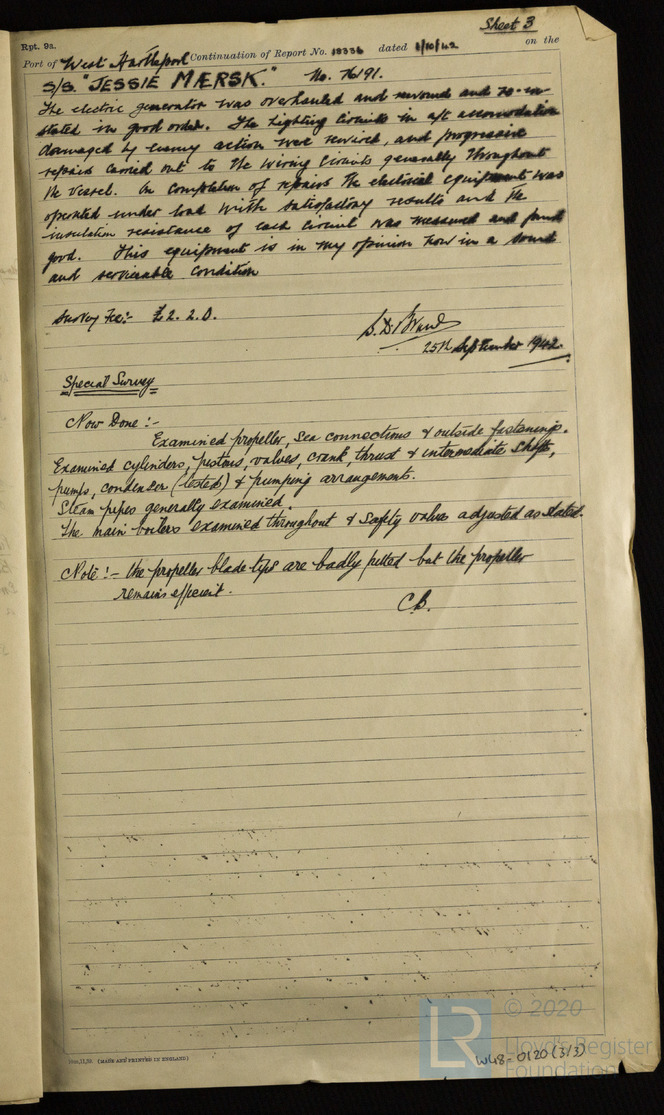 Sheet 3
Rpt. 9a.
Port of West Hartlepool Continuation of Report No. 18336 dated 1/10/42 on the
S/S. "JESSIE MÆRSK." No. 76191.
The electric generator was overhauled and rewound and re-in-
stated in good order. The lighting circuits in aft accomodation
damaged by enemy action were rewired, and progressive
repairs carried out to the wiring circuits generally throughout
the vessel. On completion of repairs the electrical equipment was
operated under load with satisfactory results and the
insulation resistance of each circuit was measured and found
good. This equipment is in my opinion now in a sound
and serviceable condition
Survey Fee:- £2. 2. 0.
25th September 1942.
Special Survey
Now Done :-
Examined propeller, sea connections & outside fastenings.
Examined cylinders, pistons, valves, crank, thrust & intermediate shafts,
pumps, condenser (tested) & pumping arrangements.
Steam pipes generally examined.
The main boilers examined throughout & safety valves adjusted as stated.
Note :- The propeller blade tips are badly pitted but the propeller
remains efficient.
C.B.
(MADE AND PRINTED IN ENGLAND)
LR
© 2020
Lloyd's Register
Foundation
W48-0120 (3/3)